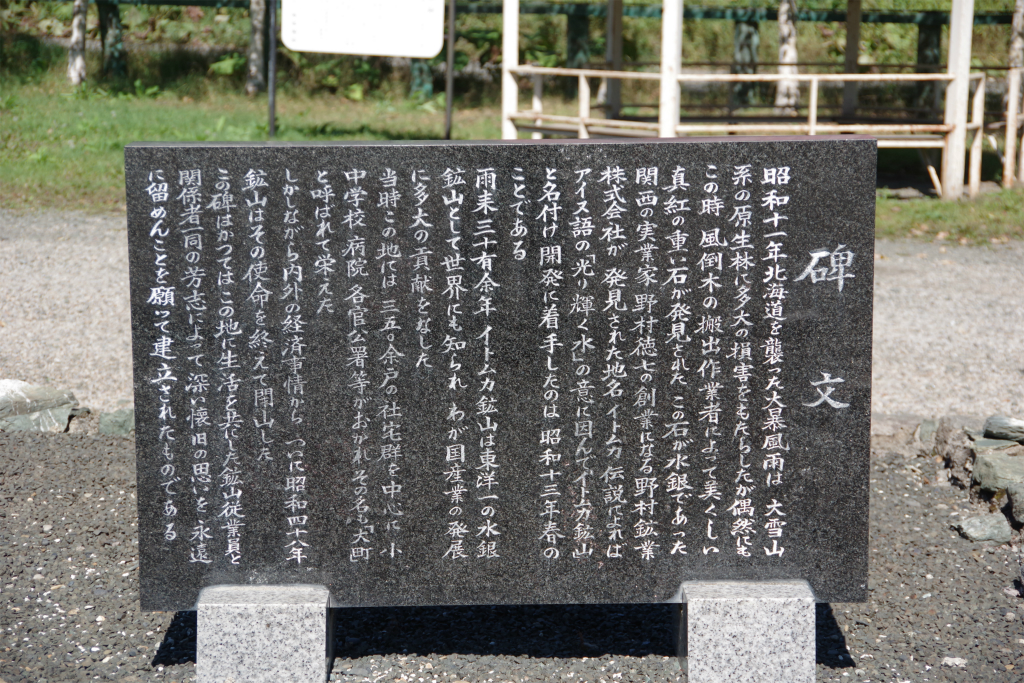 碑文
昭和十一年北海道を襲った大暴風雨は 大雪山
系の原生林に多大の損害をもたらしたが偶然にも
この時 風倒木の搬出作業者によって美くしい
真紅の重い石が発見された この石が水銀であった
関西の実業家 野村徳七の創業になる野村鉱業
株式会社が 発見された地名 イトムカ 伝説によれば
アイヌ語の「光り輝く水」の意に因んでイトムカ鉱山
と名付け 開発に着手したのは 昭和十三年春の
ことである
雨来三十有余年 イトムカ鉱山は東洋一の水銀
鉱山として世界にも知られ わが国産業の発展
に多大の貢献をなした
当時この地には 三五〇余戸の社宅群を中心に 小
中学校 病院 各官公署等がおかれ その名も「大町」
と呼ばれて栄えた
しかしながら内外の経済事情から ついに昭和四十八年
鉱山はその使命を終えて閉山した
この碑はかつてはこの地に生活を共にした鉱山従業員と
関係者一同の芳志によって 深い懐旧の思いを 永遠
に留めんことを願って建立されたものである